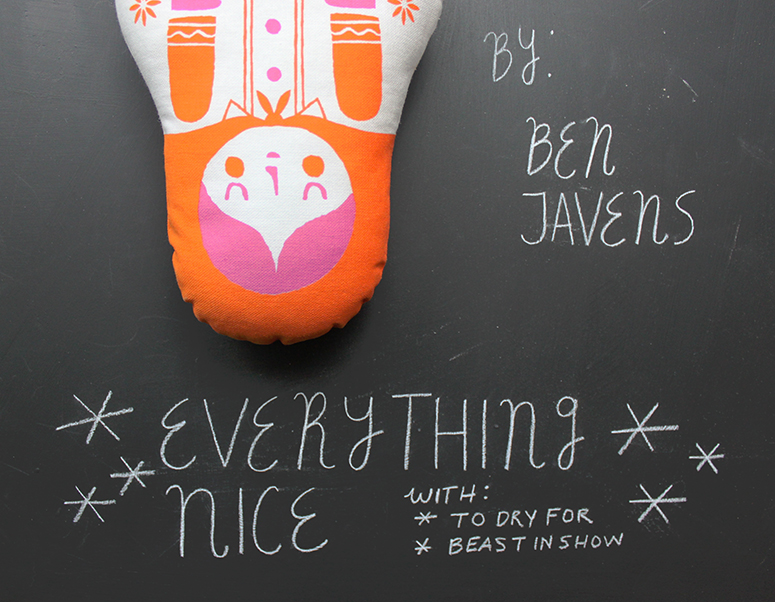 BY:
BEN
JAVENS
EVERYTHING
NICE
WITH:
* TO DRY FOR
* BEAST IN SHOW